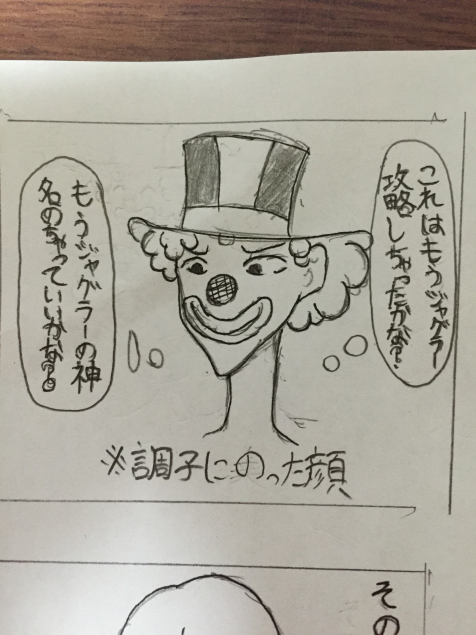 これはもうジャグラー
攻略しちゃったかな?
もうジャグラーの神
名のちゃっていいかな?
※調子にのった顔
その